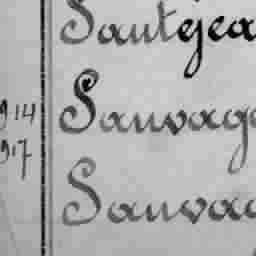 Sautejea
914 Sauvage
917 Sauvag